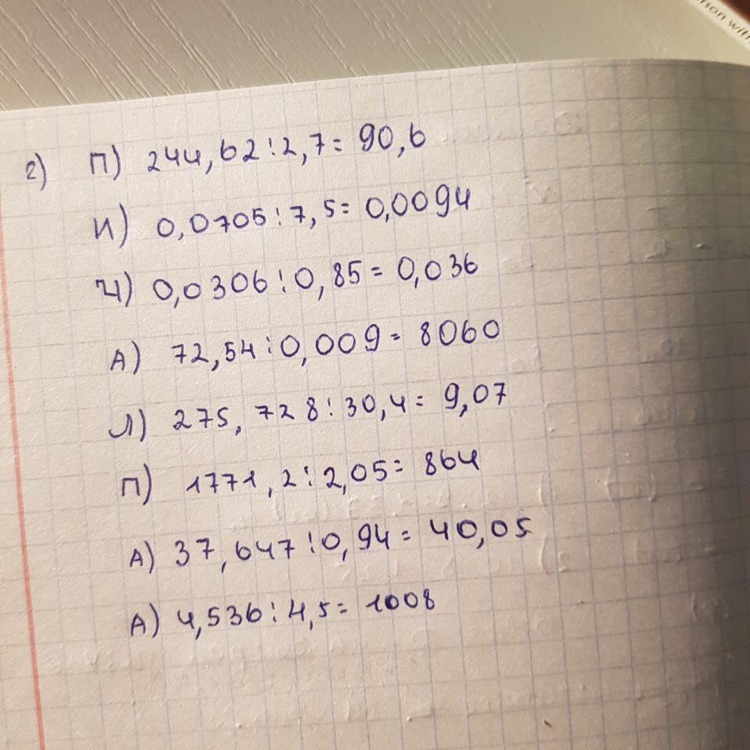 hon with
2) П) 244,62:2,7= 90,6
И) 0,0705:7,5= 0,0094
Ч) 0,0306:0,85= 0,036
А) 72,54:0,009= 8060
Л) 275,728:30,4= 9,07
П) 1771,2:2,05= 864
А) 37,647:0,94= 40,05
А) 4,536:4,5= 1008